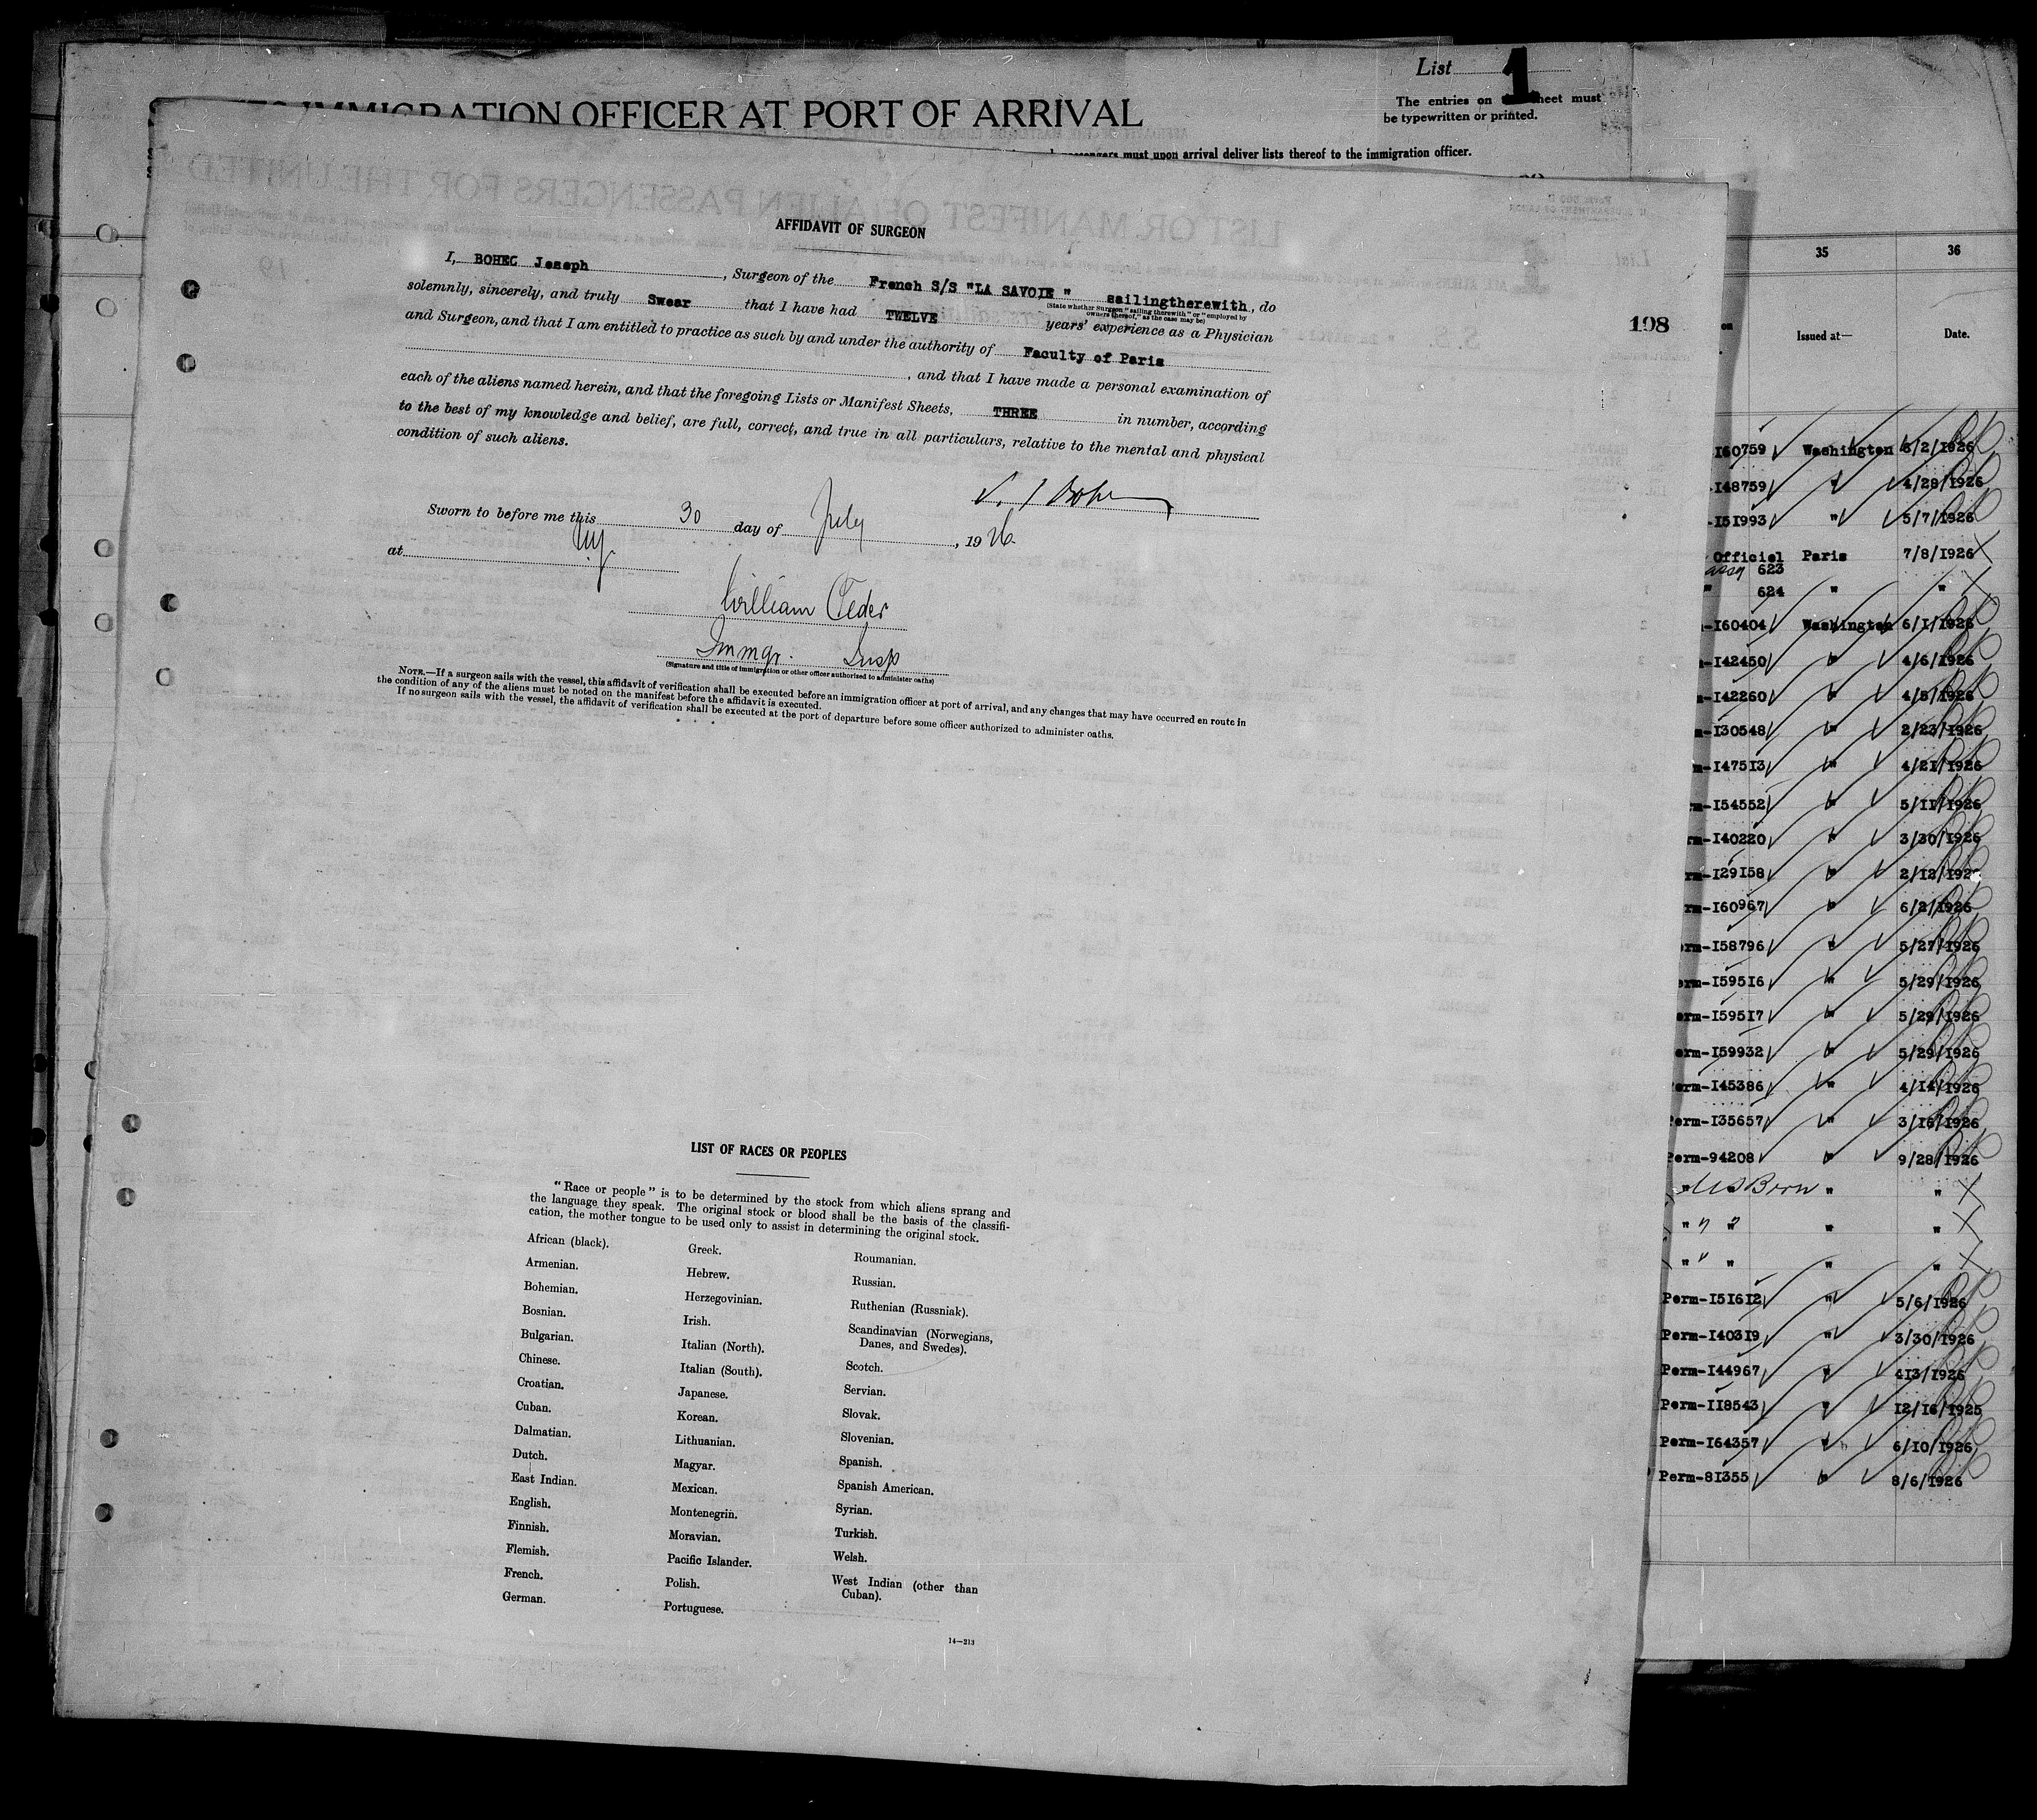 List 1
IMMIGRATION OFFICER AT PORT OF ARRIVAL
The entries on sheet must
be typewritten or printed.
must upon arrival deliver lists thereof to the immigration officer.
AFFIDAVIT OF SURGEON
I, BOHEC Joseph, Surgeon of the French S/S "LA SAVOIE" sailingtherewith, do
(State whether surgeon "sailing therewith" or "employed by
owners thereof," as the case may be)
solemnly, sincerely, and truly Swear that I have had TWELVE years' experience as a Physician
and Surgeon, and that I am entitled to practice as such by and under the authority of Faculty of Paris
, and that I have made a personal examination of
each of the aliens named herein, and that the foregoing Lists or Manifest Sheets, THREE in number, according
to the best of my knowledge and belief, are full, correct, and true in all particulars, relative to the mental and physical
condition of such aliens.
Sworn to before me this 30 day of July, 1926.
at NY.
William
Immgr. Insp
(Signature and title of immigration or other officer authorized to administer oaths)
NOTE.—If a surgeon sails with the vessel, this affidavit of verification shall be executed before an immigration officer at port of arrival, and any changes that may have occurred en route in
the condition of any of the aliens must be noted on the manifest before the affidavit is executed.
If no surgeon sails with the vessel, the affidavit of verification shall be executed at the port of departure before some officer authorized to administer oaths.
LIST OF RACES OR PEOPLES
"Race or people" is to be determined by the stock from which aliens sprang and
the language they speak. The original stock or blood shall be the basis of the classifi-
cation, the mother tongue to be used only to assist in determining the original stock.
African (black).
Armenian.
Bohemian.
Bosnian.
Bulgarian.
Chinese.
Croatian.
Cuban.
Dalmatian.
Dutch.
East Indian.
English.
Finnish.
Flemish.
French.
German.
Greek.
Hebrew.
Herzegovinian.
Irish.
Italian (North).
Italian (South).
Japanese.
Korean.
Lithuanian.
Magyar.
Mexican.
Montenegrin.
Moravian.
Pacific Islander.
Polish.
Portuguese.
Roumanian.
Russian.
Ruthenian (Russniak).
Scandinavian (Norwegians,
Danes, and Swedes).
Scotch.
Servian.
Slovak.
Slovenian.
Spanish.
Spanish American.
Syrian.
Turkish.
Welsh.
West Indian (other than
Cuban).
14—213
198
35 36
Issued at— Date.
I60759 Washington 6/2/1926
I48759 " 4/28/1926
I51993 " 5/7/1926
Officiel Paris 7/8/1926
623
" 624 " "
I60404 Washington 6/1/1926
I42450 " 4/6/1926
I42260 " 4/5/1926
I30548 " 2/23/1926
m-I47513 " 4/21/1926
rm-I54552 " 5/11/1926
rm-I40220 " 3/30/1926
rm-I29158 " 2/12/1926
rm-I60967 " 6/2/1926
erm-I58796 " 5/27/1926
erm-I59516 " 5/29/1926
erm-I59517 " 5/29/1926
erm-I59932 " 5/29/1926
erm-I45386 " 4/14/1926
Perm-I35657 " 3/16/1926
Perm-94208 " 9/28/1926
" US Born " "
" " " " "
" " " " "
Perm-I51612 " 5/6/1926
Perm-I40319 " 3/30/1926
Perm-I44967 " 413/1926
Perm-II8543 " 12/16/1925
Perm-I64357 " 6/10/1926
Perm-81355 " 8/6/1926